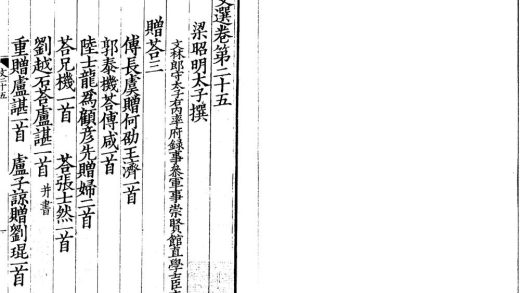 文選卷第二十五
梁昭明太子撰
文林郎守太子右内率府録事參軍事崇賢館直學士臣
贈荅三
傅長虞贈何劭王濟一首
郭泰機荅傅咸一首
陸士龍爲顧彦先贈婦二首
荅兄機一首 荅張士然一首
劉越石荅盧諶一首 并書
重贈盧諶一首 盧子諒贈劉琨一首
文二十五